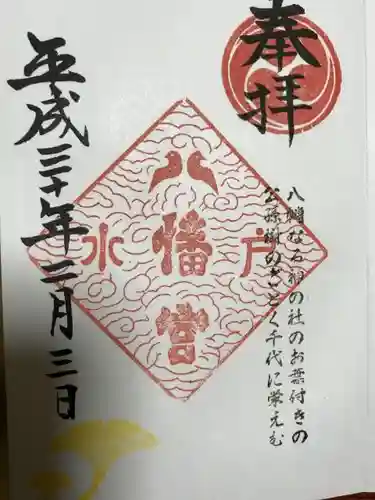 奉拝
八幡なる祢の社のお葉付きの
公孫樹のごとく千代に栄えむ
水戸
八幡宮
平成三十年三月三日